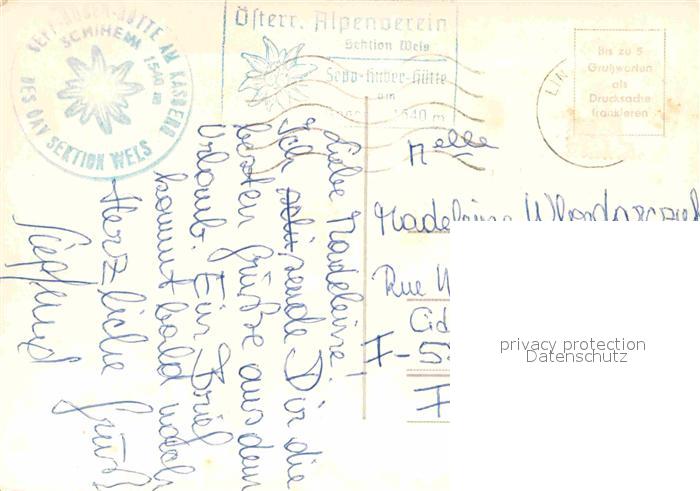 SEPP-HUBER-HÜTTE AM KASBERG
SCHIHEIM
1540 m
DES ÖAV SEKTION WELS
Österr. Alpenverein
Sektion Wels
Sepp-Huber-Hütte
am
1540 m
Bis zu 5
Grußworten
als
Drucksache
frankieren
LIN
Liebe Madeleine!
Ich sende Dir die
besten Grüße aus dem
Urlaub. Ein Brief
kommt bald nach
Herzliche Grüße
Siegfried
Melle
Madeleine
Rue
Cid
F-5
F
privacy protection
Datenschutz